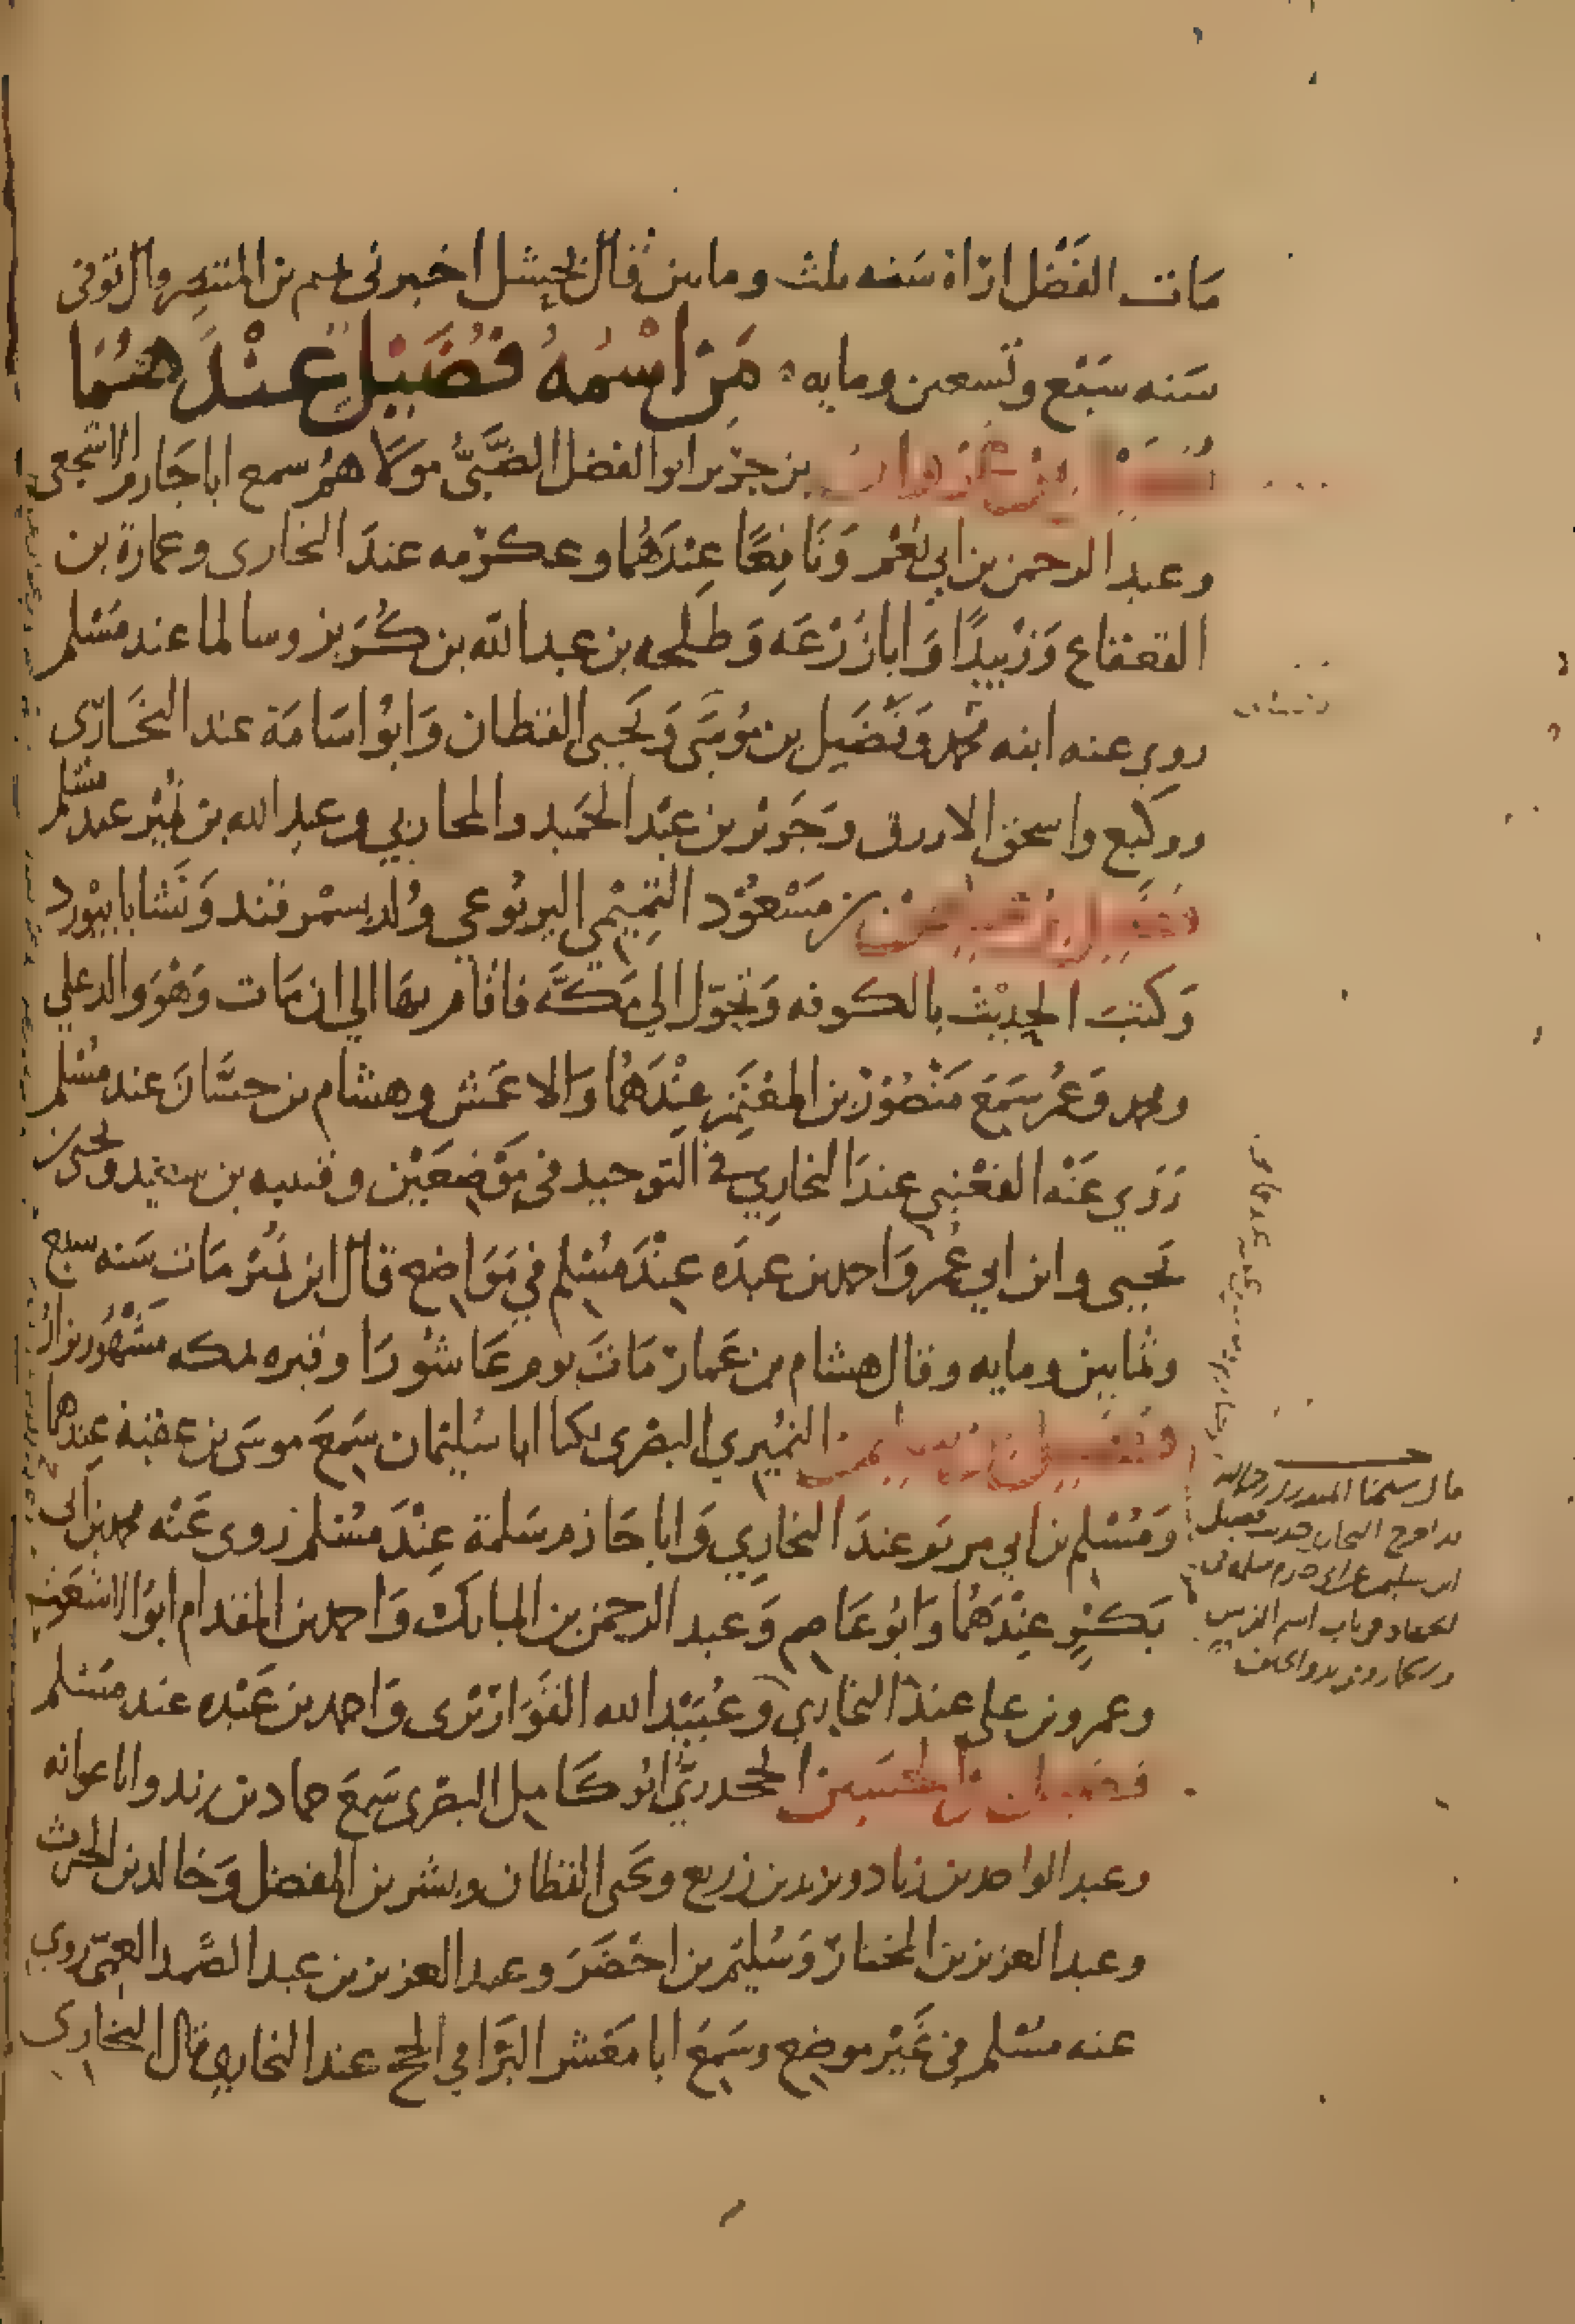 مات الفَضْل اراه سَنه ثلث ومايتين قال بحشل اخبرني تميم بن المنتصر قال توفى
سَنه سَبْع وتسعين ومايه مَن اسْمُهُ فُضَيْل عِنْدَهُمَا
فُضَيْل بن غزوان بن جرير ابو الفضل الضَّبِّيُّ مَولَاهُم سمع ابا حَازم الاشجعى
وعبد الرحمن بن ابي نُعْم وَنَافِعًا عِنْدَهُمَا وعكرمه عندَ البخارى وعمارة بن
القعقاع وَزُبَيدًا وَابا زُرْعَه وَطلحه بن عبد الله بن كُرَيز وسالما عند مُسْلم
روى عنه ابنه محمد وَفُضَيل بن مُوسَى وَيَحيى القطان وَابُو اسَامَة عند البخَارى
ووكيع واسحق الازرق وَجَرير بن عَبْد الحَميد والمحاربي وعبد الله بن نُمَيْر عند مسلم
فضيل بن عياض بن مَسْعُوْد التَّمِيْمي اليربُوعي وُلد بسمْرقند وَنَشَا بابيوَرد
وَكتبَ الحديْث بالكوفه وَتحوّل الي مَكَّه فاقام بهَا الي ان مَات وَهْوَ والد علي
ومحمد وَعُمر سَمِعَ مَنْصُوْر بن المعْتَمر عِنْدَهُمَا وَالاعمَش وهشام بن حسَّانَ عند مُسْلم
رَوَي عَنْه القعْنبي عندَ البخاري في التوحيد في مَوْضِعَيْن وقتيبه بن سعيد ويحيى بن
يَحيى وابن ابي عُمر وَاحمد بن عبدَه عِنْدَ مُسْلم في مَوَاضِع قال ابن نُمَيْر مَات سَنه سبع
وثمانين ومايه وقال هشام بن عَمار مَاتَ يوم عَاشُورَا وقبره بمكه مَشْهُور يزار
وفضيل بن سليمن النميْري البصْرى يكنا ابا سُليمان سَمِعَ موسَى بن عقبة عِندهما
وَمُسْلم بن ابي مريم عندَ البخاري وَابا حَازم سَلمة عِنْدَ مسْلم رَوى عَنْه محمد بن ابي
بَكْرٍ عِنْدَهُمَا وَابُو عَاصِم وَعبد الرحمن بن المبارَك وَاحمد بن المقدام ابُو الاشعَث
وعمرو بن علي عندَ البخاري وَعُبَيْد الله القَوَاريْرى وَاحمد بن عَبْده عند مُسْلم
فضيل بن الحُسَيْن الجحدريّ ابُو كَامِل البصْرى سَمعَ حماد بن زيد وابا عوانه
وعبد الواحد بن زياد ويزيد بن زريع ويحيى القطان وبشر بن المفضل وَخالد بن الحرث
وعبد العزيز بن المختار وَسُلَيْم بن اخضَرَ وعبد العزيز بن عبد الصَّمد العمّى روي
عنه مُسْلم في غَيْر موضع وسَمعَ ابا مَعْشر البَرَّا في الحج عند البخاري قال البخارى